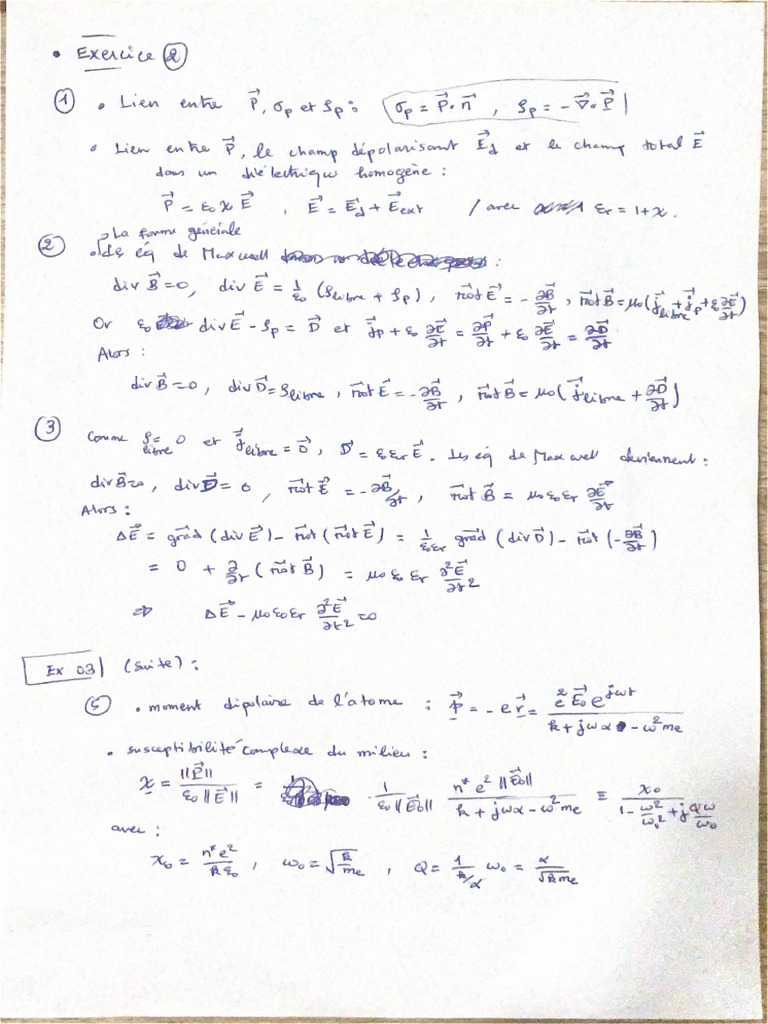 • Exercice ②
① • Lien entre P⃗, σp et ρp : σp = P⃗·n⃗ , ρp = -∇⃗·P⃗
• Lien entre P⃗, le champ dépolarisant E⃗d et le champ total E⃗
dans un diélectrique homogène :
P⃗ = ε₀ χ E⃗ , E⃗ = E⃗d + E⃗ext / avec εr = 1+χ.
② La forme générale
• des éq de Maxwell :
div B⃗ = 0, div E⃗ = 1/ε₀ (ρlibre + ρp), rot⃗ E⃗ = -∂B⃗/∂t, rot⃗ B⃗ = μ₀(j⃗libre + j⃗p + ε₀∂E⃗/∂t)
Or ε₀ div E⃗ - ρp = D⃗ et j⃗p + ε₀ ∂E⃗/∂t = ∂P⃗/∂t + ε₀ ∂E⃗/∂t = ∂D⃗/∂t
Alors :
div B⃗ = 0, div D⃗ = ρlibre, rot⃗ E⃗ = -∂B⃗/∂t, rot⃗ B⃗ = μ₀(j⃗libre + ∂D⃗/∂t)
③ Comme ρlibre = 0 et j⃗libre = 0⃗, D⃗ = ε₀εr E⃗. Les éq de Maxwell deviennent :
div B⃗ = 0, div D⃗ = 0, rot⃗ E⃗ = -∂B⃗/∂t, rot⃗ B⃗ = μ₀ε₀εr ∂E⃗/∂t
Alors :
ΔE⃗ = grad⃗ (div E⃗) - rot⃗ (rot⃗ E⃗) = 1/ε₀εr grad⃗ (div D⃗) - rot⃗ (-∂B⃗/∂t)
= 0 + ∂/∂t (rot⃗ B⃗) = μ₀ε₀εr ∂²E⃗/∂t²
⇒ ΔE⃗ - μ₀ε₀εr ∂²E⃗/∂t² = 0
Ex 03 (suite) :
⑤ • moment dipolaire de l'atome : p⃗ = -e r⃗ = e² E⃗₀ e^{jωt} / (k + jωα - ω²me)
• susceptibilité complexe du milieu :
χ = ||P⃗|| / ε₀||E⃗|| = 1/ε₀||E⃗₀|| n* e² ||E⃗₀|| / (k + jωα - ω²me) ≡ χ₀ / (1 - ω²/ω₀² + jQω/ω₀)
avec :
χ₀ = n*e²/kε₀ , ω₀ = √(k/me) , Q = 1/(k/α) ω₀ = α/√(k me)